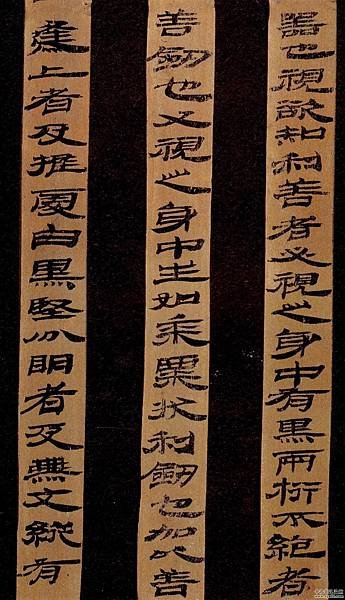 器也視欲知利善者必視之身中有黑兩桁不絶者
善劒也又視之身中生如黍粟狀利劒也加以善
逢上者及推處白黑堅分明者及無文縱有